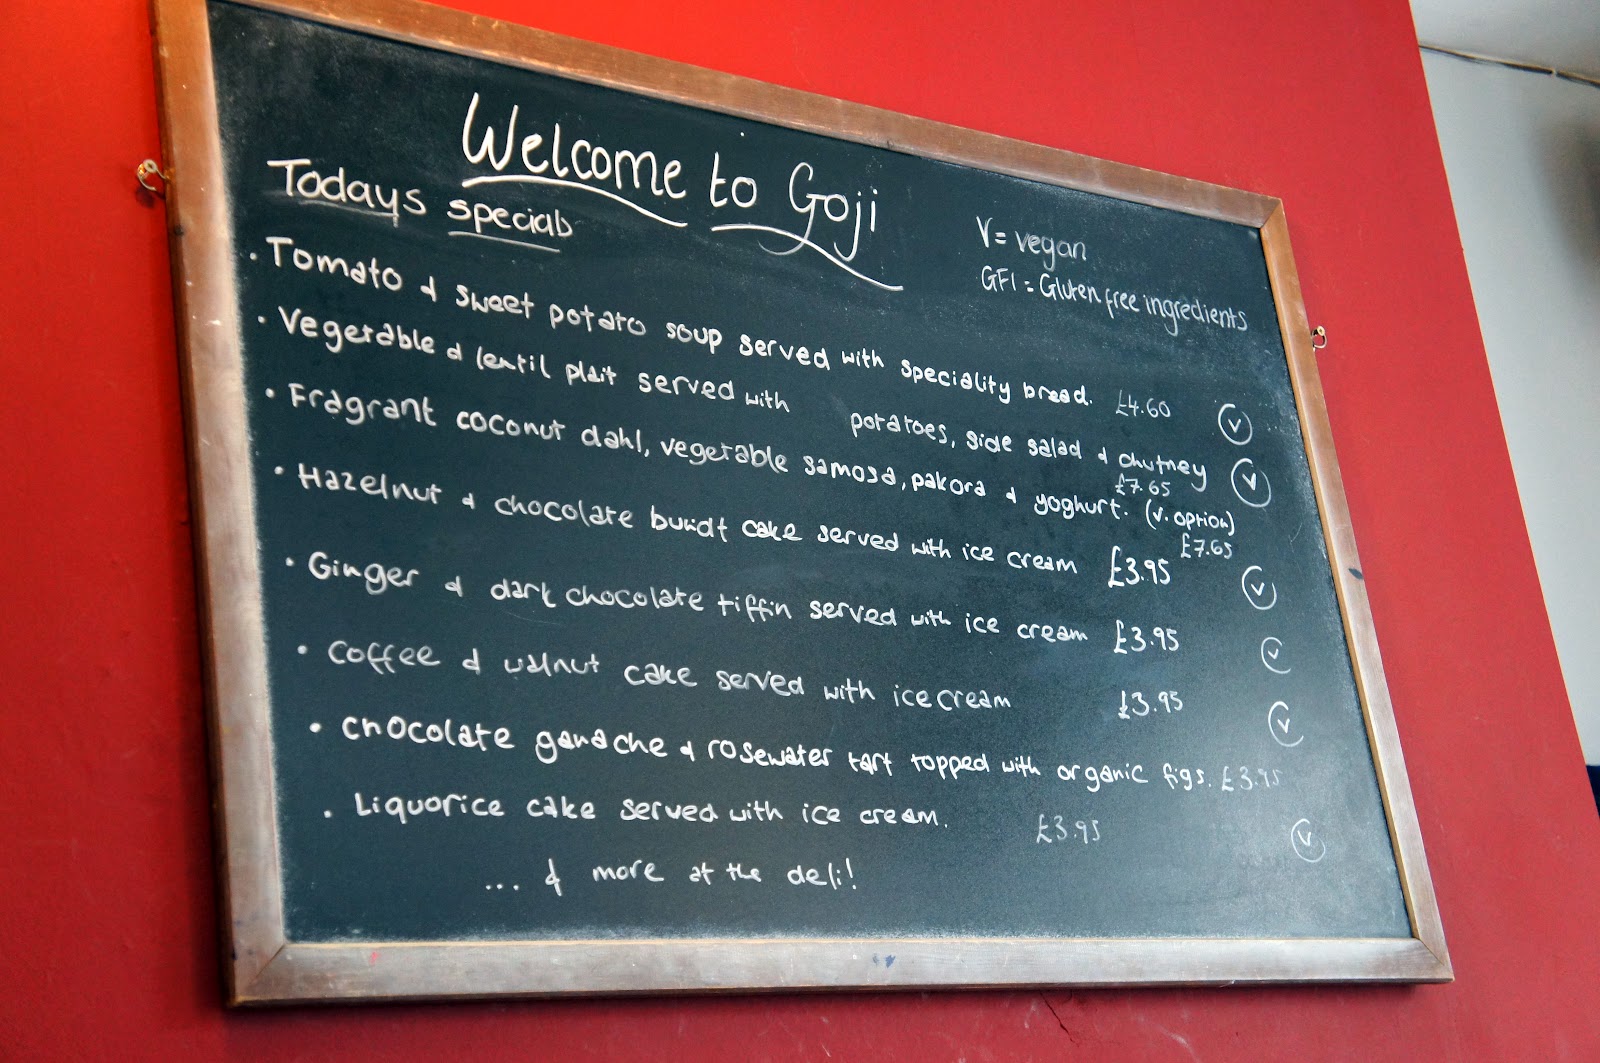 Welcome to Goji
Todays specials
V = vegan
GFI = Gluten free ingredients
• Tomato & sweet potato soup served with speciality bread. £4.60 V
• Vegetable & lentil plait served with potatoes, side salad & chutney £7.65 V
• Fragrant coconut dahl, vegetable samosa, pakora & yoghurt. (v. option) £7.65
• Hazelnut & chocolate bundt cake served with ice cream £3.95 V
• Ginger & dark chocolate tiffin served with ice cream £3.95 V
• Coffee & walnut cake served with ice cream £3.95 V
• Chocolate ganache & rosewater tart topped with organic figs. £3.95
• Liquorice cake served with ice cream. £3.95 V
... & more at the deli!